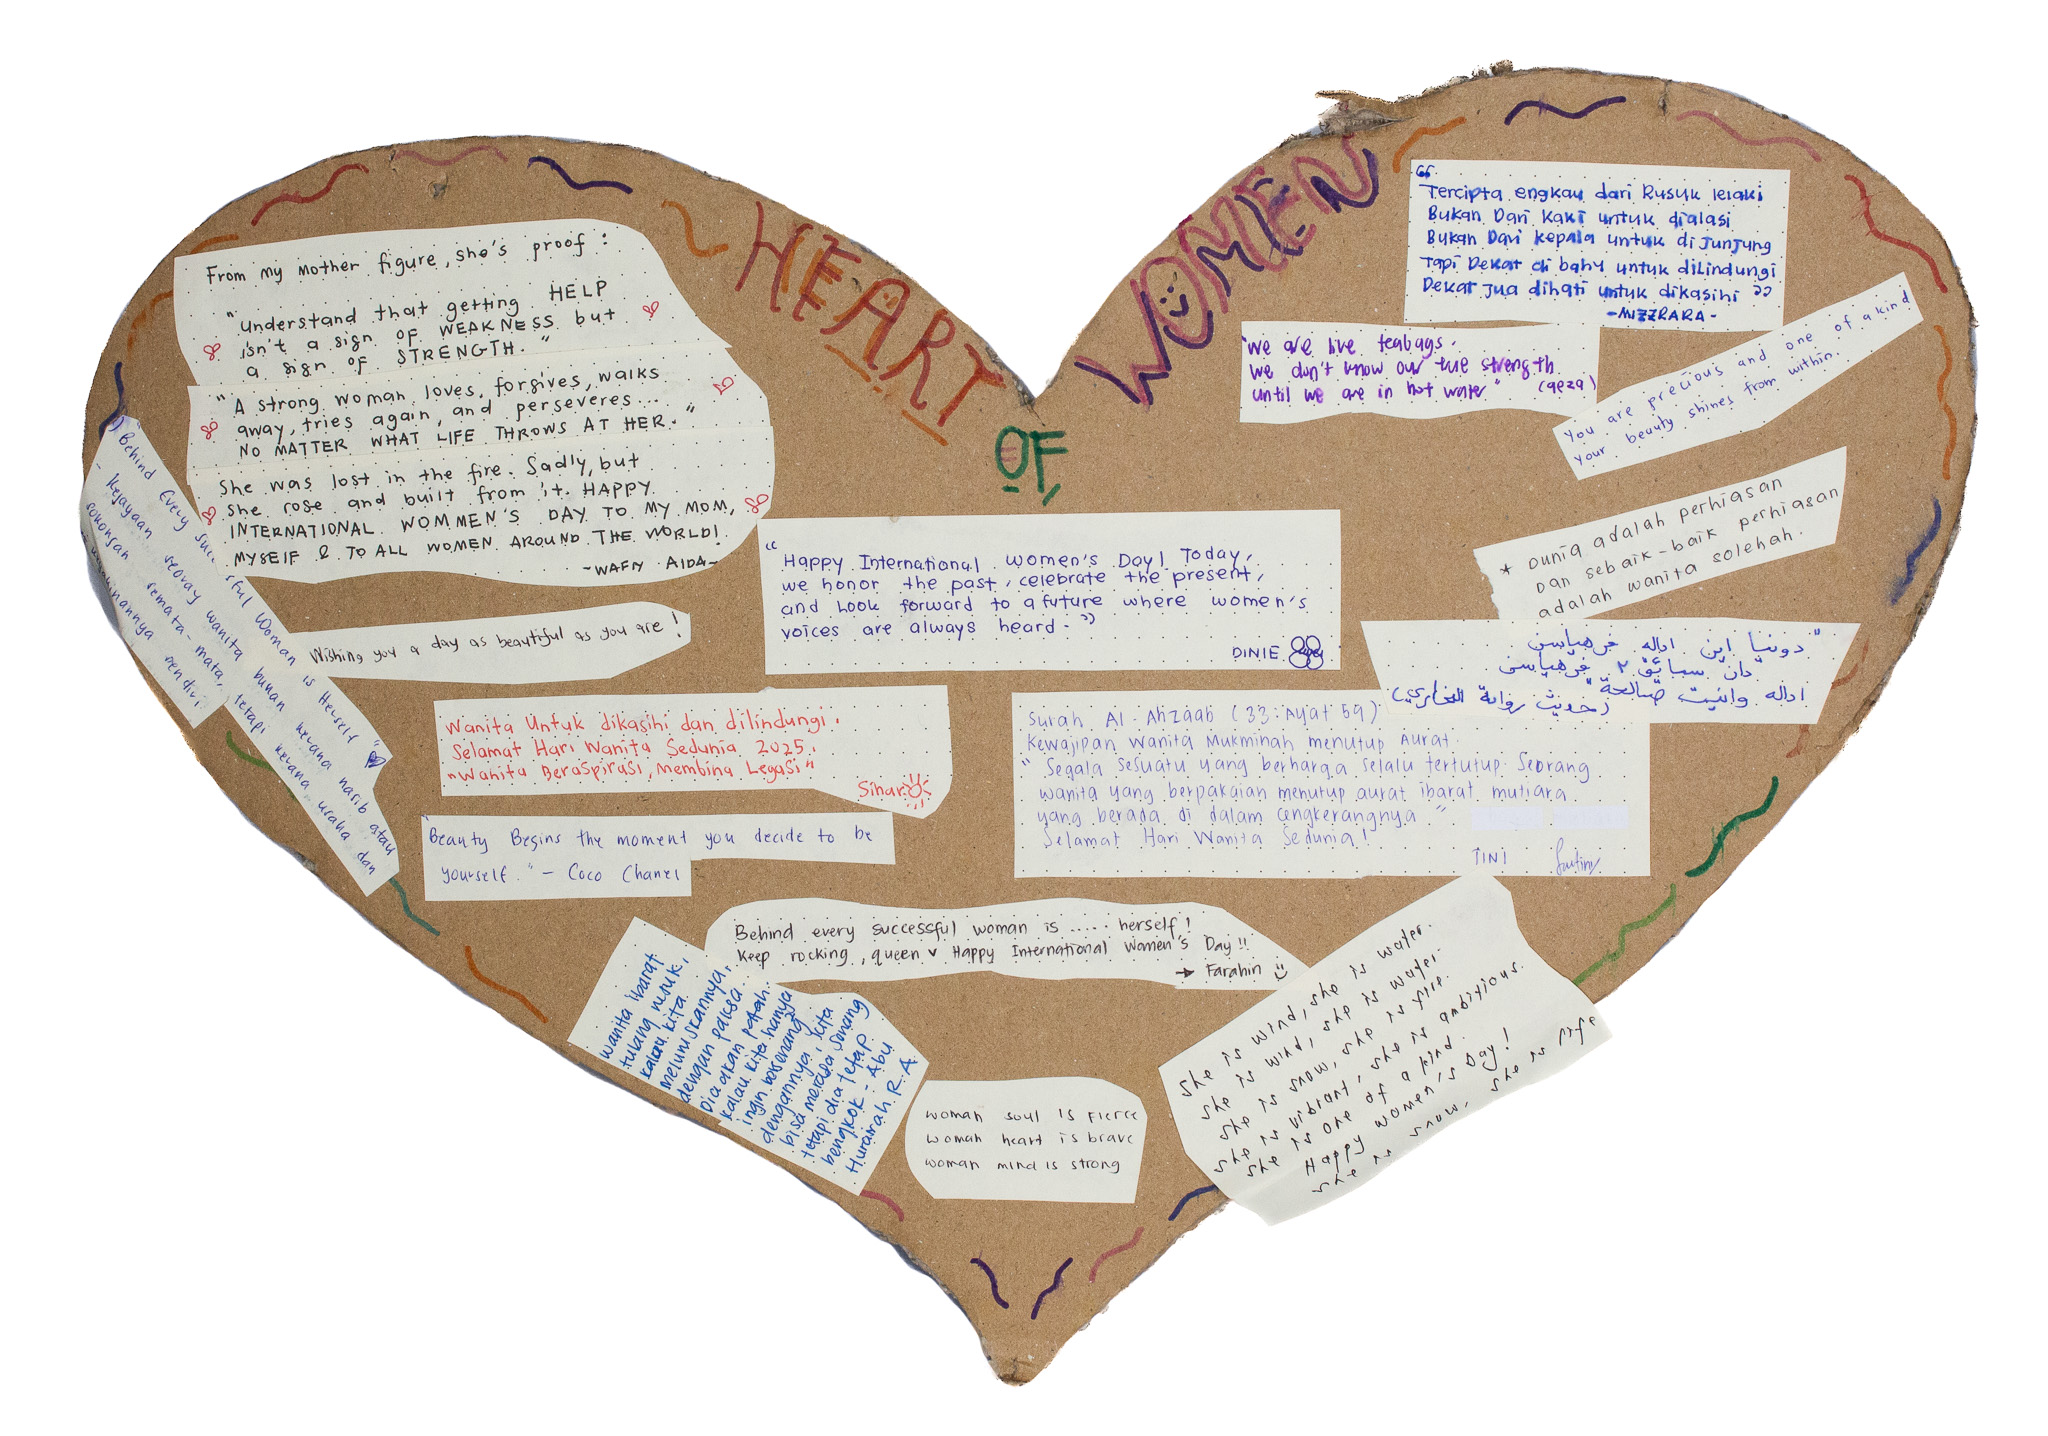 HEART
OF
WOMEN
From my mother figure, she's proof :
"understand that getting HELP
isn't a sign OF WEAKNESS but
a sign OF STRENGTH."
"A strong woman loves, forgives, walks
away, tries again, and perseveres...
NO MATTER WHAT LIFE THROWS AT HER."
She was lost in the fire. Sadly, but
she rose and built from it. HAPPY
INTERNATIONAL WOMMEN'S DAY TO MY MOM,
MYSELF & TO ALL WOMEN AROUND THE WORLD!
~WAFIY AIDA~
"Behind Every successful Woman is Herself"
- Kejayaan seorang wanita bukan kerana nasib atau
sokongan semata-mata, tetapi kerana usaha dan
keyakinannya sendiri
Wishing you a day as beautiful as you are!
"Happy International women's Day! Today,
we honor the past, celebrate the present,
and look forward to a future where women's
voices are always heard."
DINIE
"Tercipta engkau dari Rusuk lelaki
Bukan Dari Kaki untuk dialasi
Bukan Dari kepala untuk dijunjung
Tapi Dekat di bahu untuk dilindungi
Dekat jua dihati untuk dikasihi"
-MIZZRARA-
"we are live teabags.
we don't know our true strength
until we are in hot water"
You are precious and one of a kind
your beauty shines from within.
* Dunia adalah perhiasan
Dan sebaik-baik perhiasan
adalah wanita solehah.
"دونيا اين اداله فرهياسن
دان سباٴيق٢ فرهياسن
اداله وانيت صالحة"
(حديث رواية البخاري)
Wanita Untuk dikasihi dan dilindungi.
Selamat Hari Wanita Sedunia 2025.
"Wanita Beraspirasi, Membina Legasi"
Sinar
Surah Al-Ahzaab (33: Ayat 59)
Kewajipan Wanita Mukminah menutup Aurat.
"Segala sesuatu yang berharga selalu tertutup. Seorang
wanita yang berpakaian menutup aurat ibarat mutiara
yang berada di dalam cengkerangnya."
Selamat Hari Wanita Sedunia!
TINI
"Beauty Begins the moment you decide to be
yourself." - Coco Chanel
Behind every successful woman is ..... herself!
Keep rocking, queen Happy International Women's Day!!
→ Farahin
Wanita ibarat
tulang rusuk,
kalau kita
meluruskannya,
dengan paksa.
Dia akan patah.
kalau kita hanya
ingin bersenang
dengannya, kita
bisa merasa senang
tetapi dia tetap
bengkok - Abu
Hurairah R.A.
woman soul is fierce
woman heart is brave
woman mind is strong
she is wind, she is water.
she is wind, she is water.
she is snow, she is fire.
she is vibrant, she is ambitious.
she is one of a kind.
Happy women's Day!
she is snow, she is life